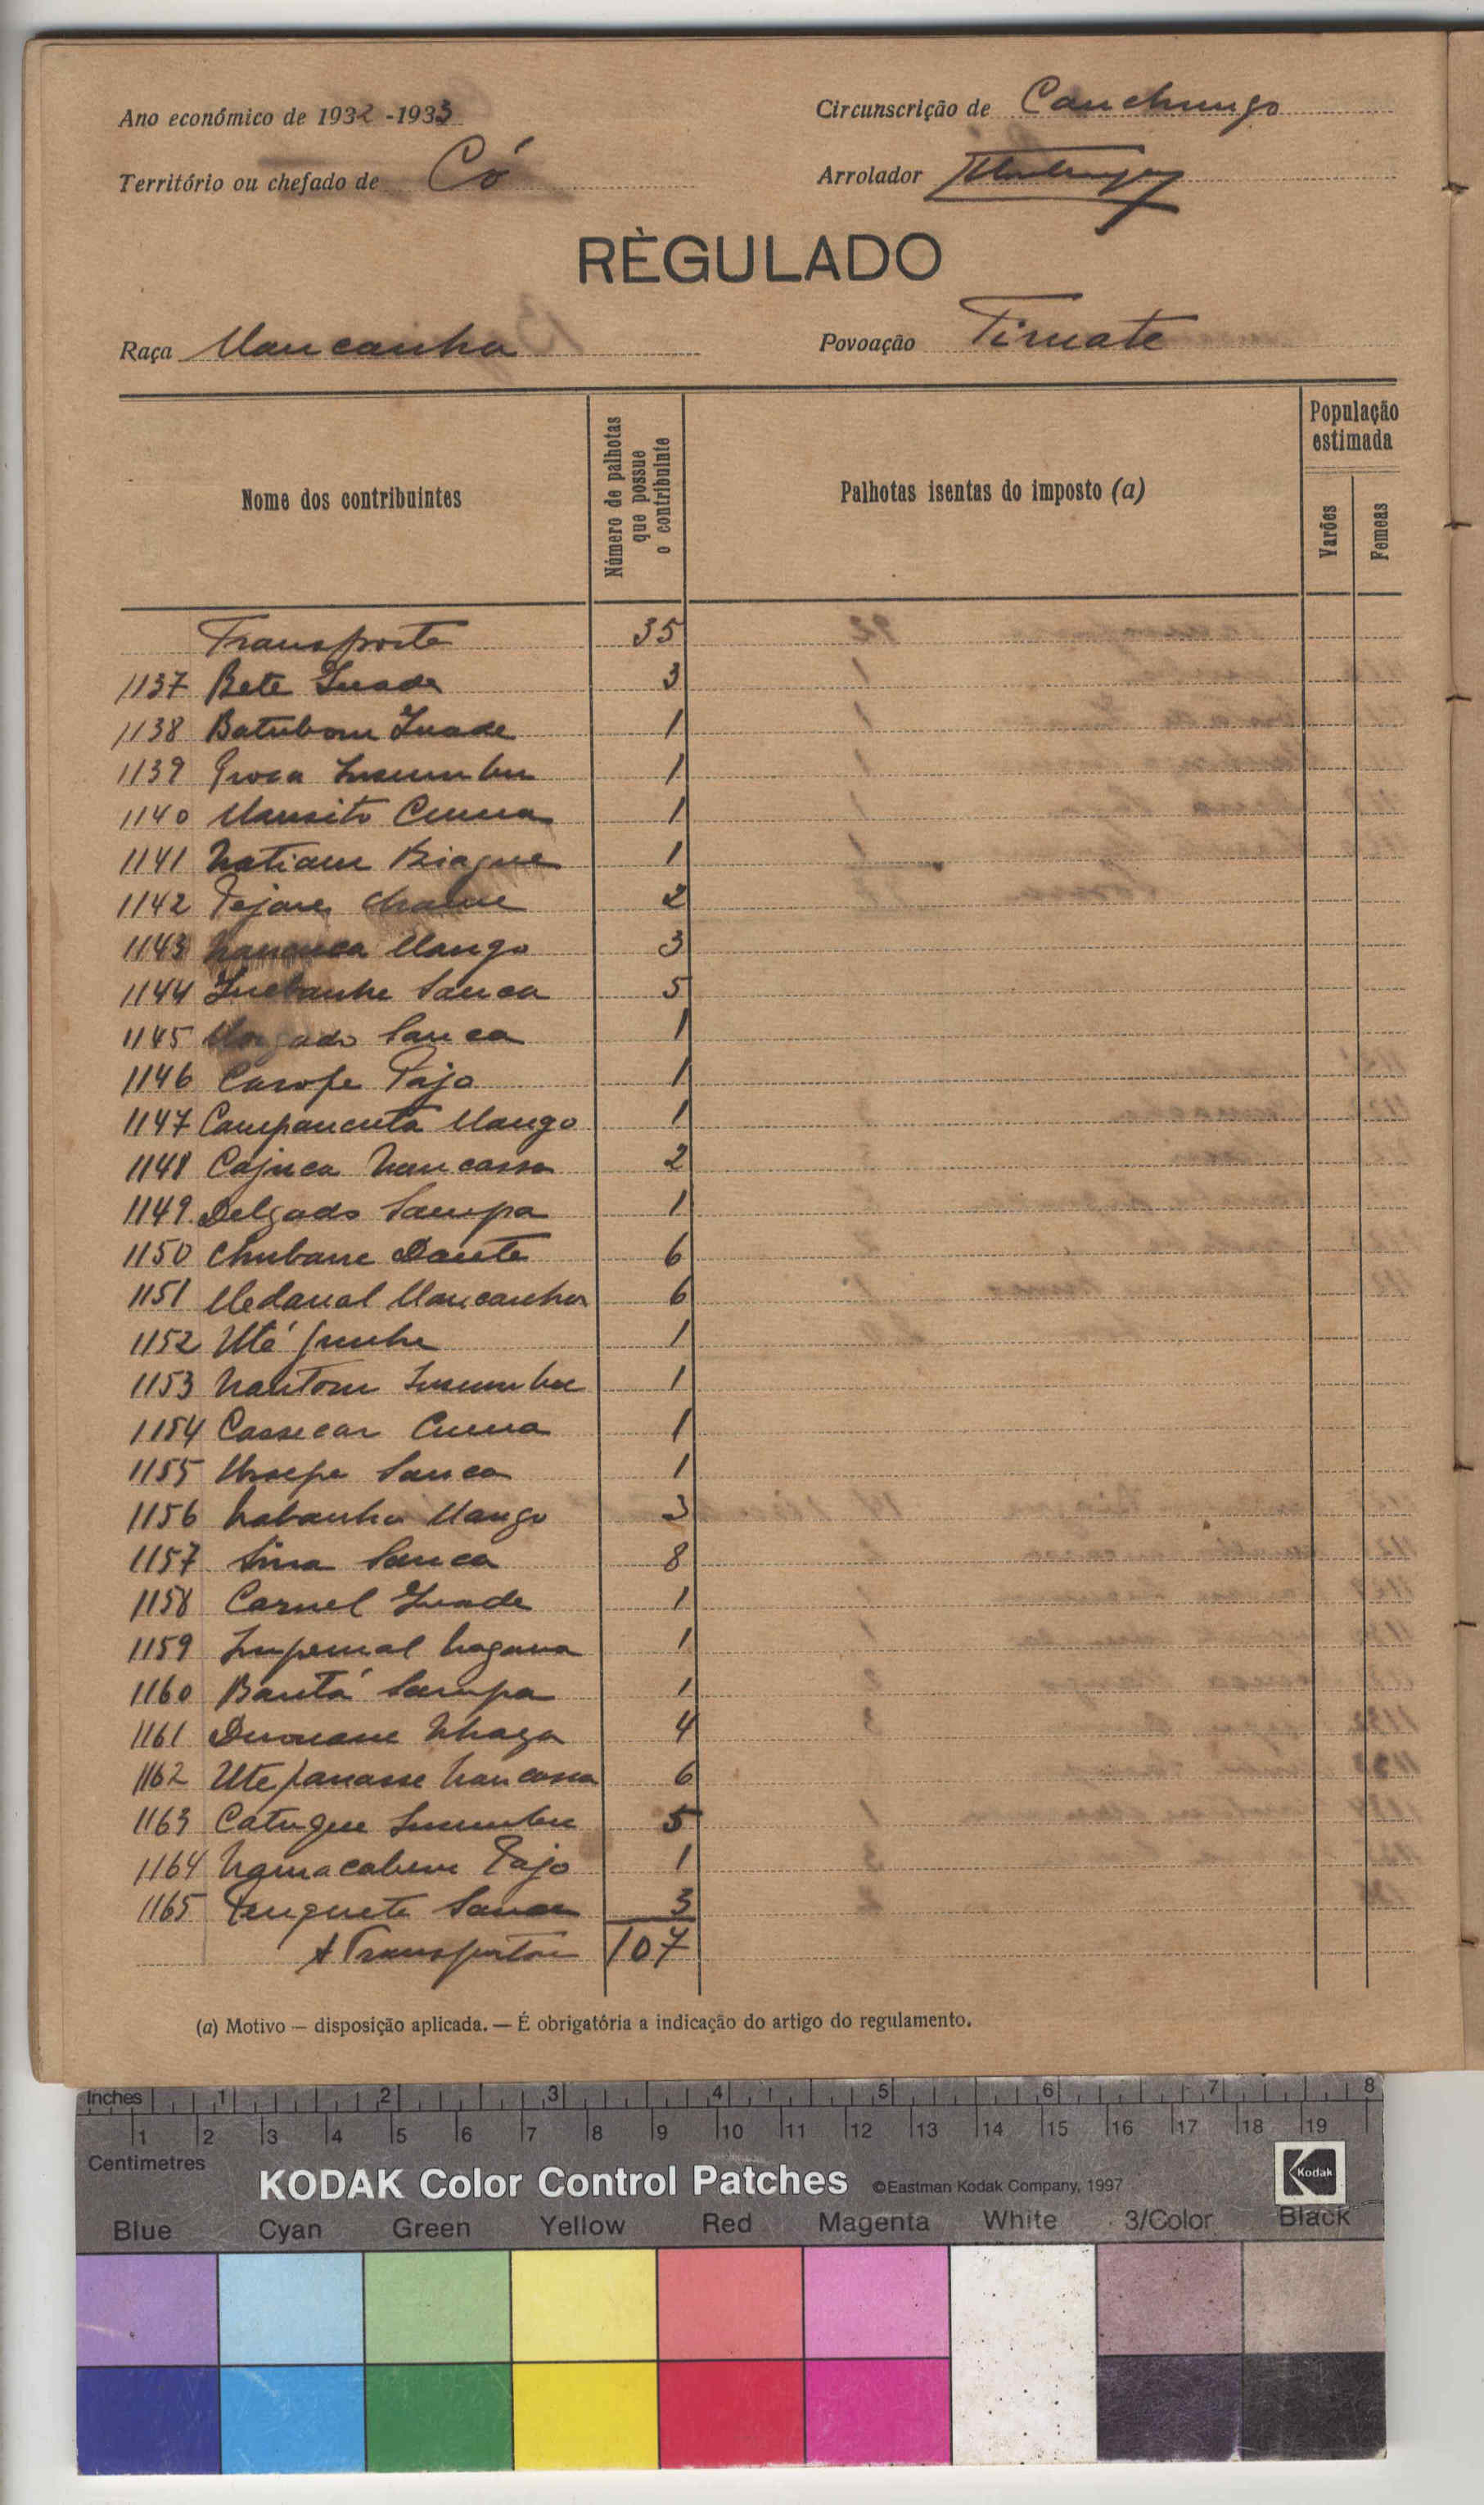 Ano económico de 1932-1933
Circunscrição de Canchungo
Território ou chefado de Có
Arrolador
RÈGULADO
Raça Mancanha
Povoação Timate
Nome dos contribuintes
Número de palhotas que possue o contribuinte
Palhotas isentas do imposto (a)
População estimada
Varões
Femeas
Transporte 35
1137 Bete Inade 3
1138 Batubom Inade 1
1139 Insumbu 1
1140 Mansito Cuma 1
1141 Natiam Biague 1
1142 2
1143 Mango 3
1144 Sanca 5
1145 Sanca 1
1146 Carofe Pajo 1
1147 Campancuta Mango 1
1148 Cajuca Nancassa 2
1149 Delgado Sampa 1
1150 Chubane Dante 6
1151 Medanal Mancanha 6
1152 Uté 1
1153 Nantom Insumbu 1
1154 Cassecar Cuma 1
1155 Sanca 1
1156 Nabanha Mango 3
1157 Sina Sanca 8
1158 Carnel Inade 1
1159 Imperial 1
1160 Bantá Sampa 1
1161 4
1162 Utepanasse Nancassa 6
1163 Catugue Insumbu 5
1164 Namacabem Pajo 1
1165 Sanca 3
A Transportar 107
(a) Motivo — disposição aplicada. — É obrigatória a indicação do artigo do regulamento.
Inches 1 2 3 4 5 6 7 8
1 2 3 4 5 6 7 8 9 10 11 12 13 14 15 16 17 18 19
Centimetres
KODAK Color Control Patches ©Eastman Kodak Company, 1997
Kodak
Blue Cyan Green Yellow Red Magenta White 3/Color Black